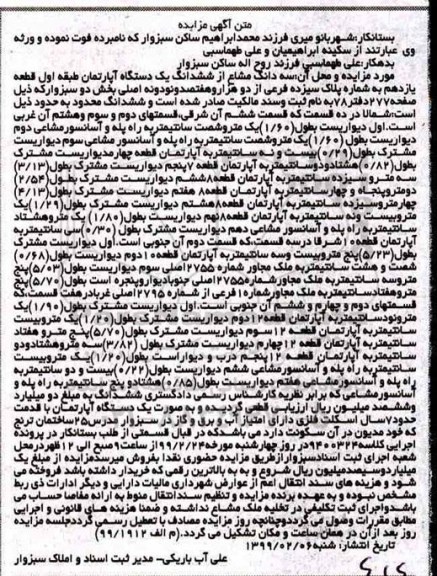 متن آگهی مزایده
بستانکار:شهربانو میری فرزند محمدابراهیم ساکن سبزوار که نامبرده فوت نموده و ورثه
وی عبارتند از سکینه ابراهیمیان و علی طهماسبی
بدهکار:علی طهماسبی فرزند روح اله ساکن سبزوار
مورد مزایده و محل آن:سه دانگ مشاع از ششدانگ یک دستگاه آپارتمان طبقه اول قطعه
یازدهم به شماره پلاک سیزده فرعی از دو هزاروهفتصدونودونه اصلی بخش دو سبزوارکه ذیل
صفحه۲۷۷دفتر۷۸به نام ثبت وسند مالکیت صادر شده است و ششدانگ محدود به حدود ذیل
است:شمالا در ده قسمت که قسمت ششم آن شرقی،قسمتهای دوم و سوم وهشتم آن غربی
است.اول دیواریست بطول(۱/۶۰)یک متروشصت سانتیمتربه راه پله و آسانسورمشاعی دوم
دیواریست بطول(۱/۶۰)یک متروشصت سانتیمتربه راه پله و آسانسور مشاعی سوم دیواریست
مشترک بطول(۰/۲۹)بیست و نه سانتیمتربه آپارتمان قطعه چهارمدیواریست مشترک
بطول(۰/۸۲)هشتادودوسانتیمتربه آپارتمان قطعه ۷پنجم دیواریست مشترک بطول(۳/۱۳)
سه مترو سیزده سانتیمتربه آپارتمان قطعه۸ششم دیواریست مشترک بطول(۲/۵۴)
دومتروپنجاه و چهار سانتیمتربه آپارتمان قطعه۸ هفتم دیواریست مشترک بطول(۴/۱۳)
چهارمتروسیزده سانتیمتربه آپارتمان قطعه۸هشتم دیواریست مشترک بطول(۱/۲۹)یک
متروبیست ونه سانتیمتربه آپارتمان قطعه۸نهم دیواریست بطول(۱/۸۰) یک متروهشتاد
سانتیمتربه راه پله و آسانسور مشاعی دهم دیواریست مشترک بطول (۰/۳۰)سی سانتیمتربه
آپارتمان قطعه۱۰شرقا درسه قسمت،که قسمت دوم آن جنوبی است.اول دیواریست مشترک
بطول(۵/۲۳)پنج متروبیست وسه سانتیمتربه آپارتمان قطعه۱۰دوم دیواریست بطول(۰/۶۸)
شصت و هشت سانتیمتربه ملک مجاور شماره ۲۷۵۵اصلی سوم دیواریست بطول(۵/۰۳)پنج
متروسه سانتیمتربه ملک مجاورشماره۲۷۵۵اصلی جنوبادیواروپنجره است بطول(۵/۷۰)پنج
متروهفتادسانتیمتربه ملک مجاورشماره۱فرعی از شماره ۲۷۹۵اصلی غربادرهفت قسمت،که
قسمتهای دوم و چهارم و ششم آن جنوبی است.اول دیواریست مشترک بطول(۱/۹۰)یک
مترونودسانتیمتربه آپارتمان قطعه۱۲دوم دیواریست مشترک بطول(۱/۲۰)یک متروبیست
سانتیمتربه آپارتمان قطعه ۱۲سوم دیواریست مشترک بطول(۵/۷۰)پنج مترو هفتاد
سانتیمتربه آپارتمان قطعه ۱۲چهارم دیواریست مشترک بطول (۳/۸۲)سه متروهشتادودو
سانتیمتربه آپارتمان قطعه ۱۲پنجم درب و دیواراست بطول(۱/۲۰)یک متروبیست
سانتیمتربه راه پله و آسانسورمشاعی ششم دیواریست بطول(۰/۲۲)بیست و دو سانتیمتربه
راه پله و آسانسورمشاعی هفتم دیواریست بطول(۰/۸۵)هشتادو پنج سانتیمتربه راه پله و
آسانسورمشاعی که برابر نظریه کارشناس رسمی دادگستری ششدانگ به مبلغ دو میلیارد
وششصد میلیون ریال ارزیابی قطعی گردیده و به صورت یک دستگاه آپارتمان با قدمت
حدود۷سال اسکلت فلزی دارای امتیاز آب و برق و گاز در سبزوار مدرس۲۵ساختمان ترنج
که خود مدیون در آن سکونت دارد می باشدکه در قبال قسمتی از طلب بستانکار در پرونده
اجرایی کلاسه۹۴۰۰۳۲۴در روز چهارشنبه مورخه۱۳۹۹/۲/۲۴از ساعت۹صبح الی ۱۲ظهردرمحل
شعبه اجرای ثبت اسنادسبزوارازطریق مزایده حضوری نقدا بفروش میرسدمزایده از مبلغ یک
میلیاردوسیصدمیلیون ریال شروع و به به بالاترین رقمی که خریدار داشته باشد فروخته می
شود و هزینه های سند انتقال اعم از عوارض شهرداری مالیات دارایی و دیگر ادارات ذی ربط
مشخص نبوده و به عهده برنده مزایده و تنظیم سندانتقال منوط به ارائه مفاصا حساب می
باشدواجرای ثبت تکلیفی در تخلیه ملک مشاع نداشته و ضمنا هزینه های قانونی و اجرایی
مطابق مقررات وصول می گرددوچنانچه روز مزایده مصادف با تعطیل رسمی گرددجلسه مزایده
روز بعد ازآن در همان ساعت و مکان تشکیل می گردد.(م الف ۹۹/۱۹۱۲)
تاریخ انتشار: شنبه۱۳۹۹/۰۲/۰۶
علی آب باریکی- مدیر ثبت اسناد و املاک سبزوار